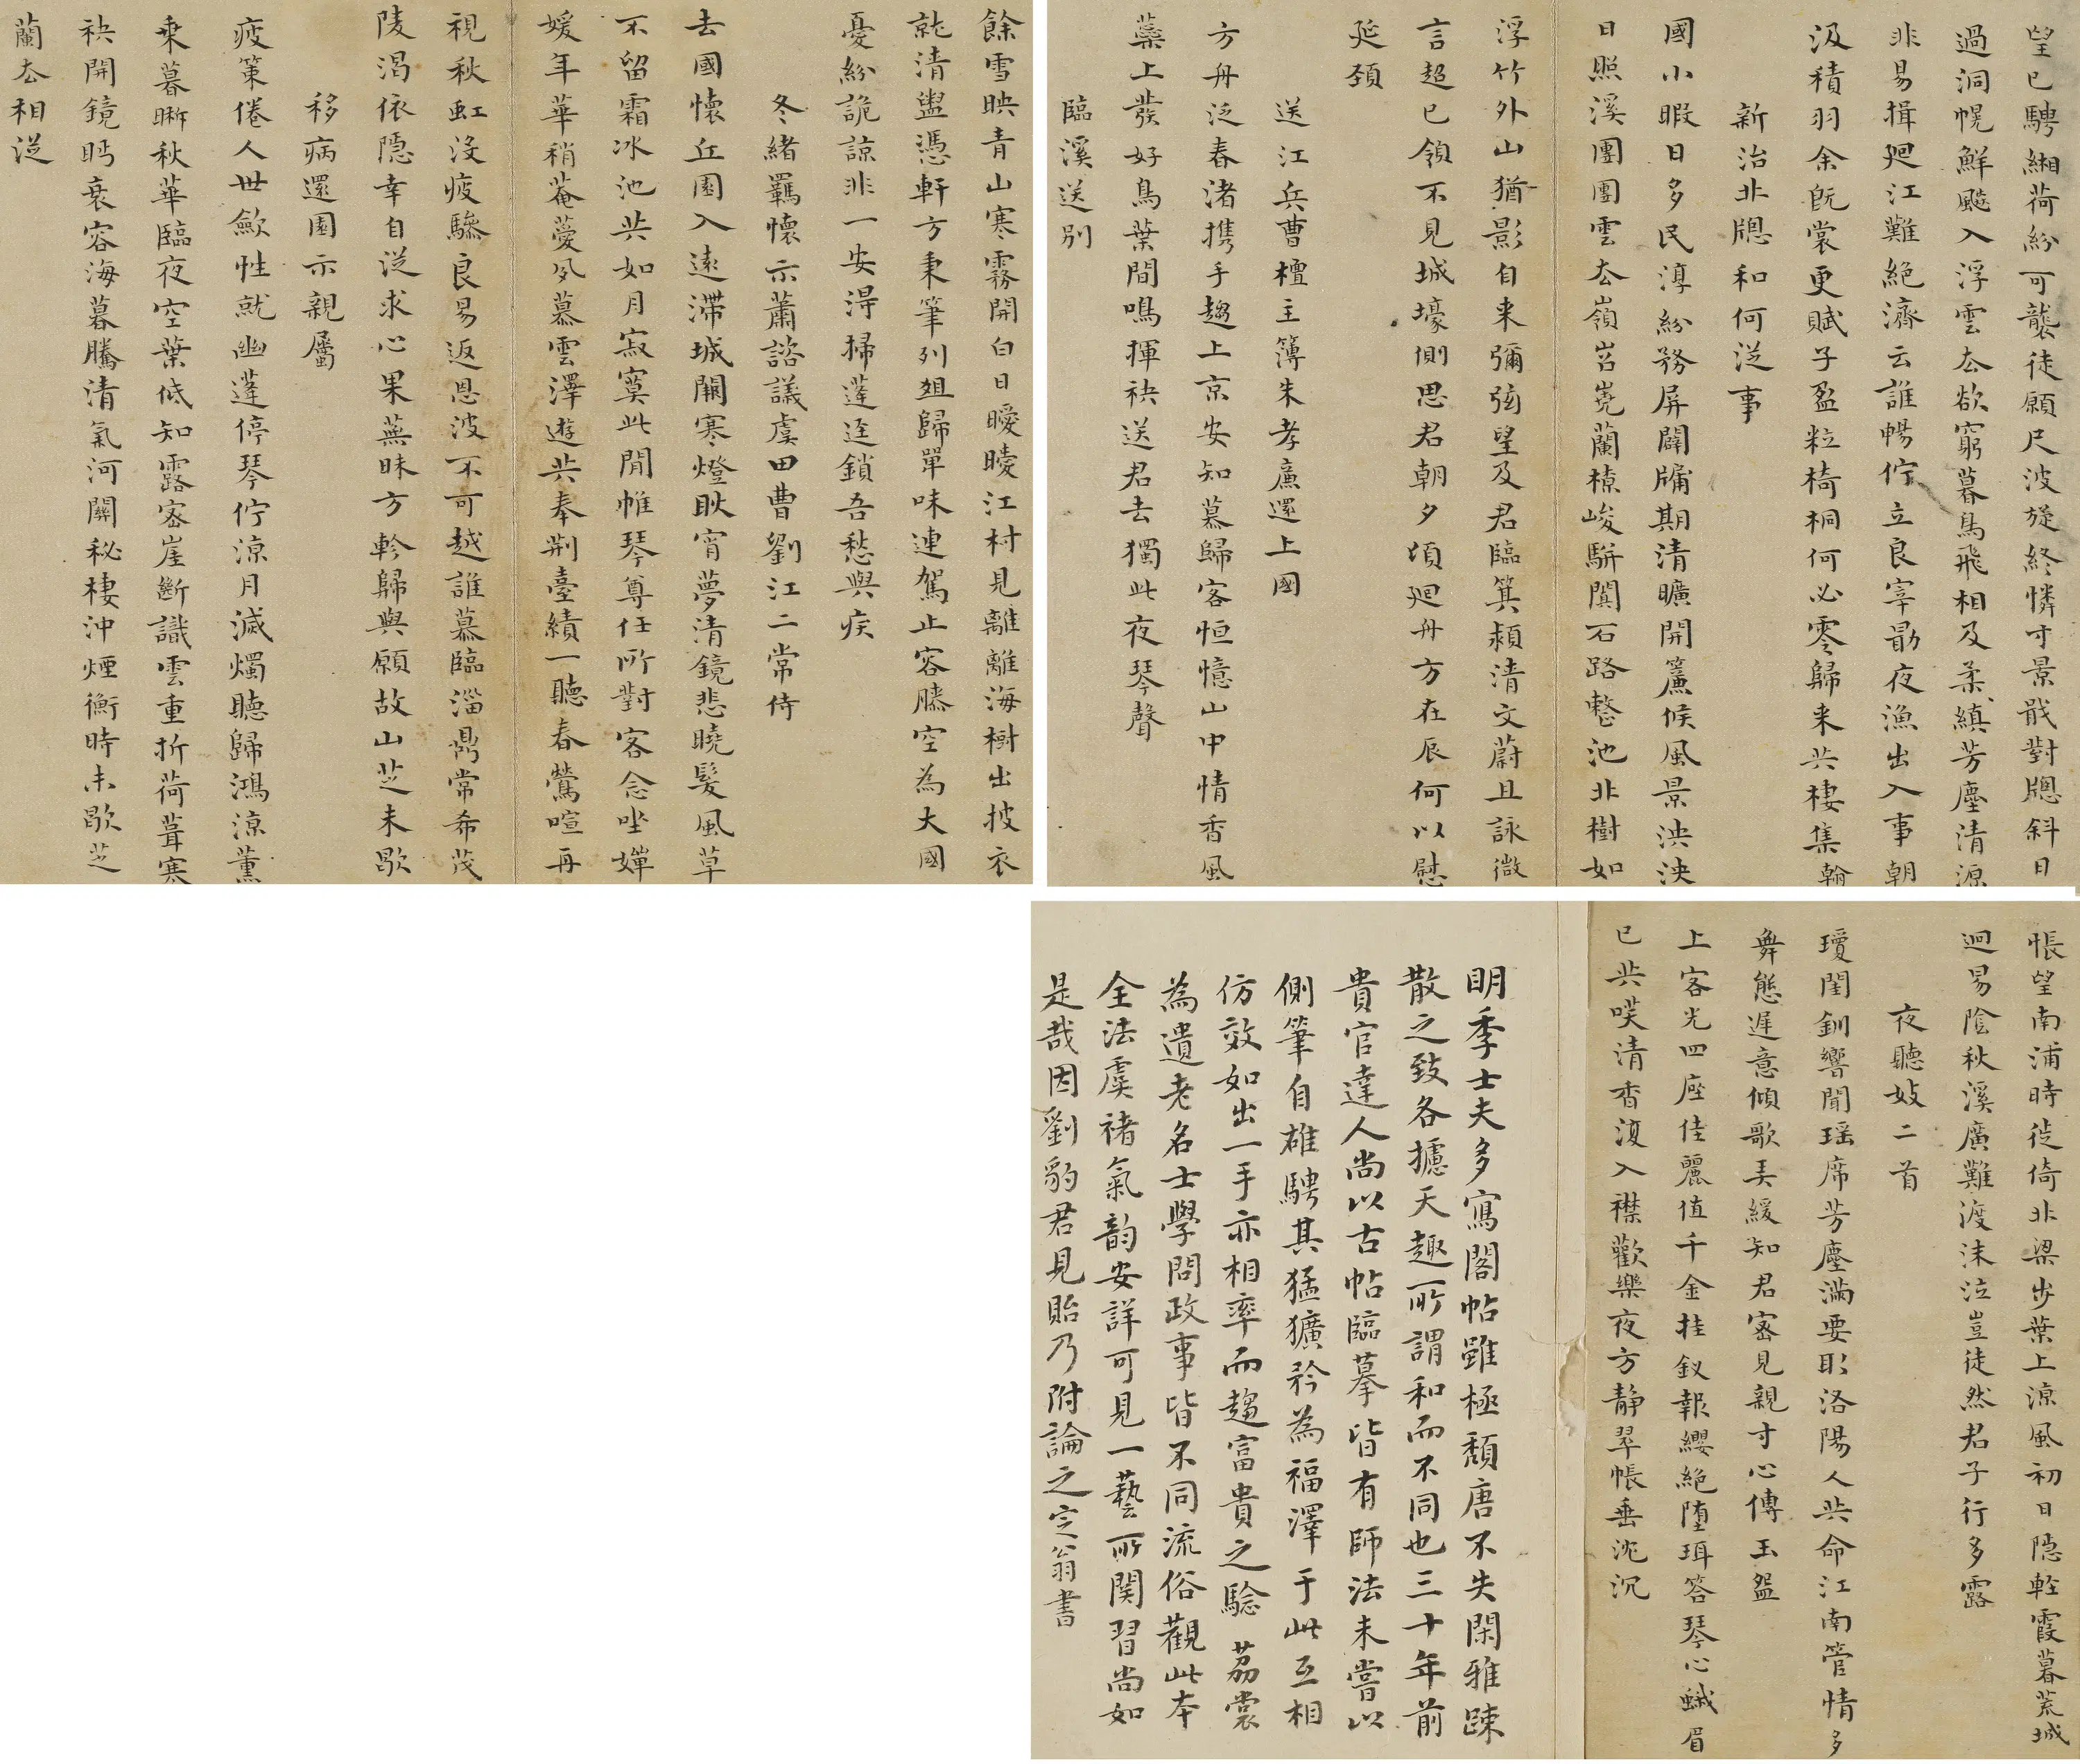 望已騁緗荷紛可襲徒願尺波旋終憐寸景戢對牕斜日
過洞幌鮮飈入浮雲去欲窮暮鳥飛相及柔縝芳塵清源
非易揖廻江難絶濟云誰暢佇立良宰勖夜漁出入事朝
汲積羽余旣裳更賦子盈粒椅桐何必零歸来共棲集
新治北牕和何從事
國小暇日多民淳紛務屏闢牗期清曠開簾候風景泱泱
日照溪團團雲去嶺岧嶤蘭橑峻駢闐石路整池北樹如
浮竹外山猶影自来彌弦望及君臨箕潁清文蔚且詠微
言超已領不見城壕側思君朝夕頃廻舟方在辰何以慰
延頸
送江兵曹檀主簿朱孝廉還上國
方舟泛春渚携手趨上京安知慕歸客恒憶山中情香風
蘂上發好鳥葉間鳴揮袂送君去獨此夜琴聲
臨溪送别
餘雪映青山寒霧開白日曖曖江村見離離海樹出披衣
就清盥憑軒方秉筆列俎歸單味連駕止容膝空為大國
憂紛詭諒非一安得掃蓬逕鎖吾愁與疾
冬緒羈懷示蕭諮議虞田曹劉江二常侍
去國懷丘園入遠滯城闕寒燈耿宵夢清鏡悲曉髮風草
不留霜冰池共如月寂寞此閒帷琴尊任所對客念坐嬋
媛年華稍菴薆夙慕雲澤遊共奉荆臺績一聽春鶯喧再
視秋虹没疲驂良易返恩波不可越誰慕臨淄鼎常希茂
陵渴依隱幸自從求心果蕪昧方軫歸與願故山芝未歇
移病還園示親屬
疲策倦人世歛性就幽蓬停琴佇涼月滅燭聽歸鴻涼薰
乘暮晰秋華臨夜空葉低知露密崖斷識雲重折荷葺寒
袂開鏡眄衰容海暮騰清氣河關秘棲沖煙衡時未歇芝
蘭去相從
悵望南浦時徙倚北梁步葉上涼風初日隠輕霞暮荒城
迥易陰秋溪廣難渡沫泣豈徒然君子行多露
夜聽妓二首
瓊閨釧響聞瑶席芳塵滿要取洛陽人共命江南管情多
舞態遲意傾歌弄緩知君密見親寸心傳玉盌
上客光四座佳麗值千金挂釵報纓絶堕珥答琴心蛾眉
已共咲清香復入襟歡樂夜方静翠帳垂沈沉
明季士夫多寫閣帖雖極頹唐不失閑雅踈
散之致各攄天趣所謂和而不同也三十年前
貴官達人尚以古帖臨摹皆有師法未嘗以
側筆自雄騁其猛獷矜為福澤于此互相
仿效如出一手亦相率而趨富貴之驗茘裳
為遺老名士學問政事皆不同流俗觀此本
全法虞褚氣韵安詳可見一藝所関習尚如
是哉因劉豹君見貽乃附論之定翁書